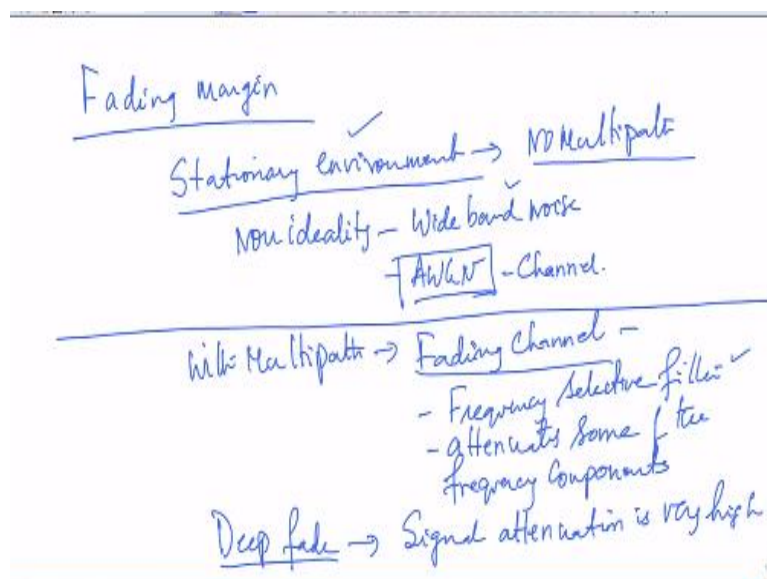 Fading margin
Stationary environment → No Multipath
Non ideality - Wide band noise
- AWGN - Channel.
With Multipath → Fading Channel -
- Frequency Selective filter
- attenuates some of the
frequency Components
Deep fade → Signal attenuation is very high